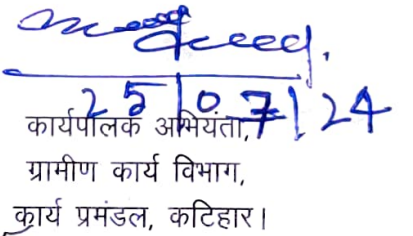 25/07/24
कार्यपालक अभियंता,
ग्रामीण कार्य विभाग,
कार्य प्रमंडल, कटिहार।